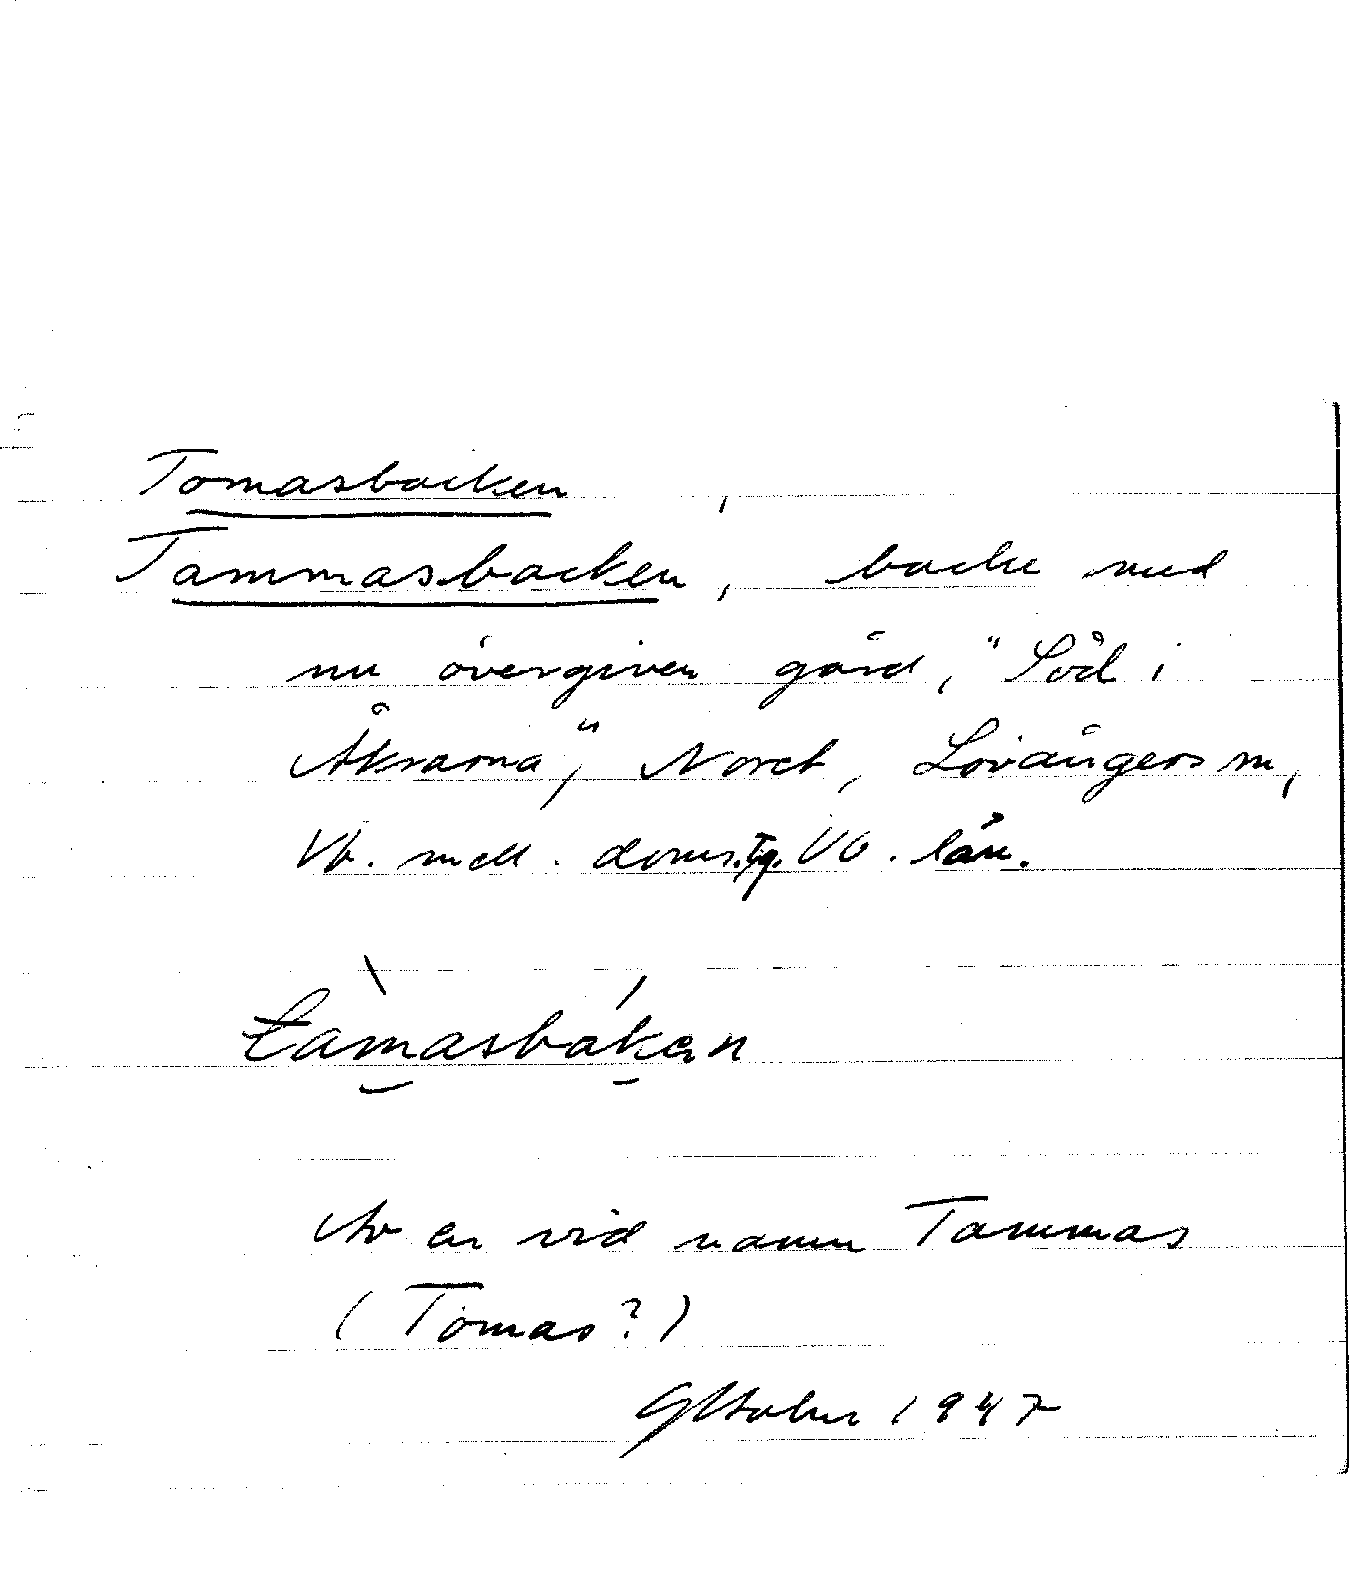 Tomasbacken
Tammasbacken, backe med
nu övergiven gård, "Söd i
Åkrarna", Noret, Lövångers sn,
Vb. mell. doms.tg. Vb. län.
tamasbakan
Av en vid namn Tammas
(Tomas?)
1947